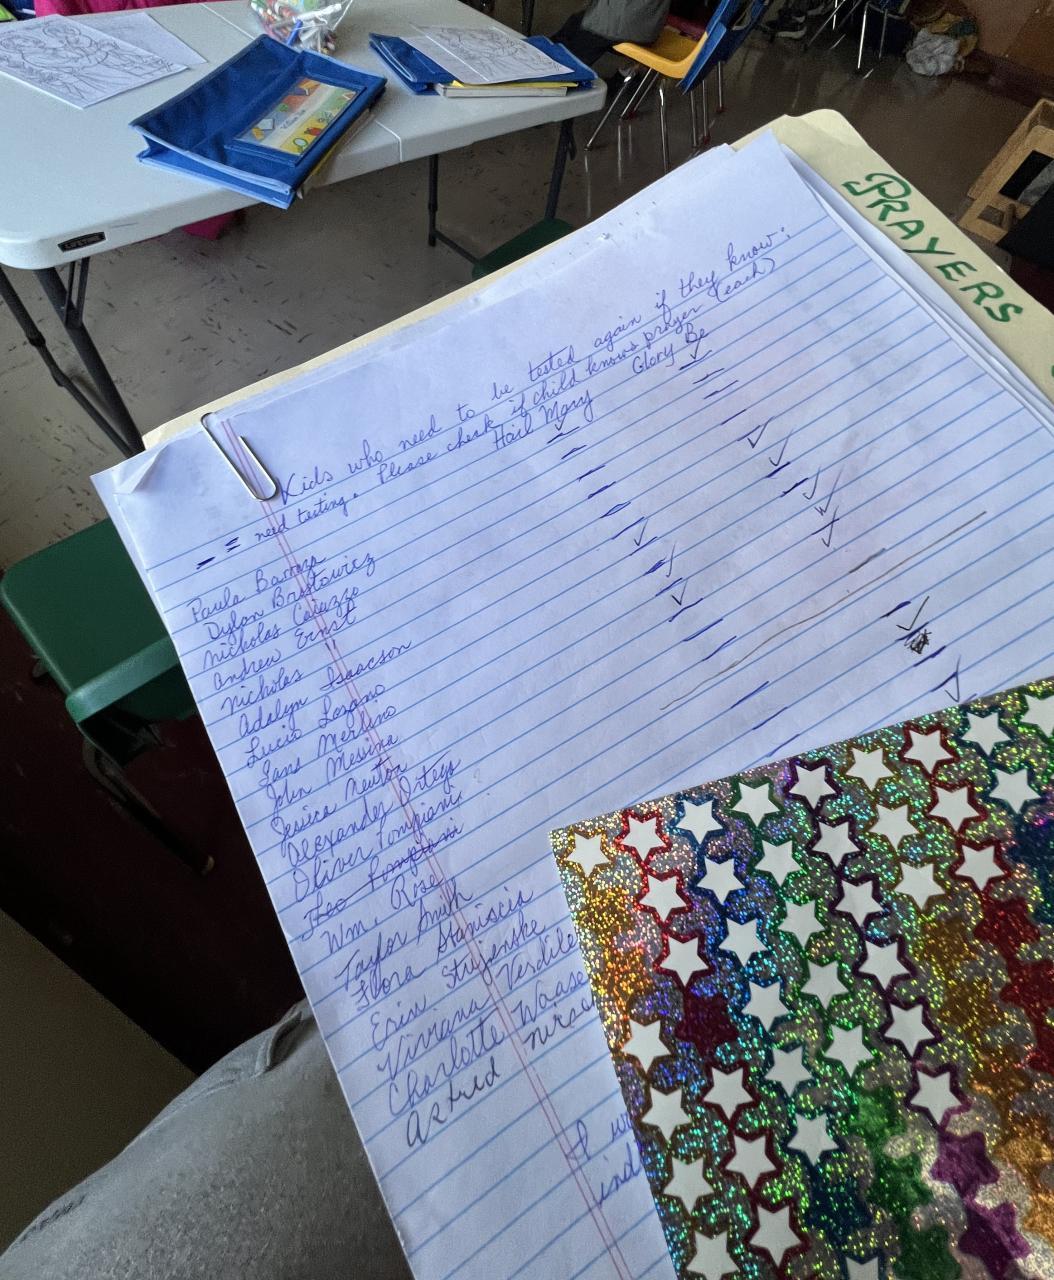 PRAYERS
Kids who need to be tested again if they know:
— = need testing. Please check if child knows prayer (each)
Hail Mary Glory Be
Paula Barraza
Dylan Bristowicz
Nicholas Caiazzo
Andrew Ernst
Nicholas "
Adalyn Isaacson
Lucio Lozano
Jans Merlino
John Messina
Jessica Neuton
Alexander Ortega ?
Oliver Pompiani
Theo Pompiani
Wm. Rose
Taylor Smith
Flora Staniscia
Erin Stryjenske
Viviana Verdile
Charlotte Waase
Astrid
LIFETIME